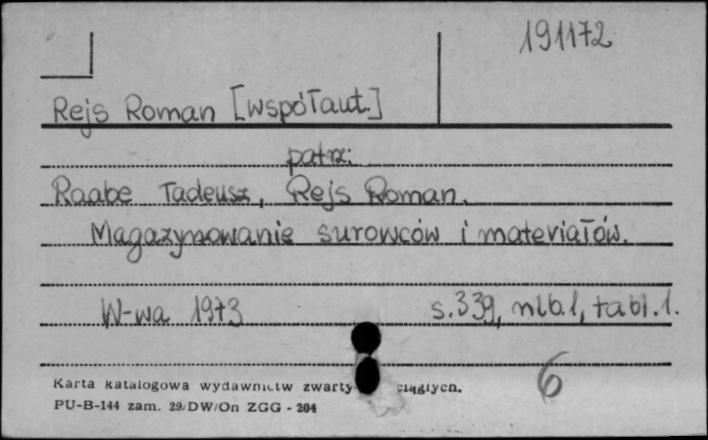 191172
Rejs Roman [współaut.]
patrz:
Raabe Tadeusz, Rejs Roman.
Magazynowanie surowców i materiałów.
W-wa 1973 s.339, nlb.1, tabl.1.
Karta katalogowa wydawnictw zwarty ciągłych.
6
PU-B-144 zam. 29/DW/On ZGG - 204